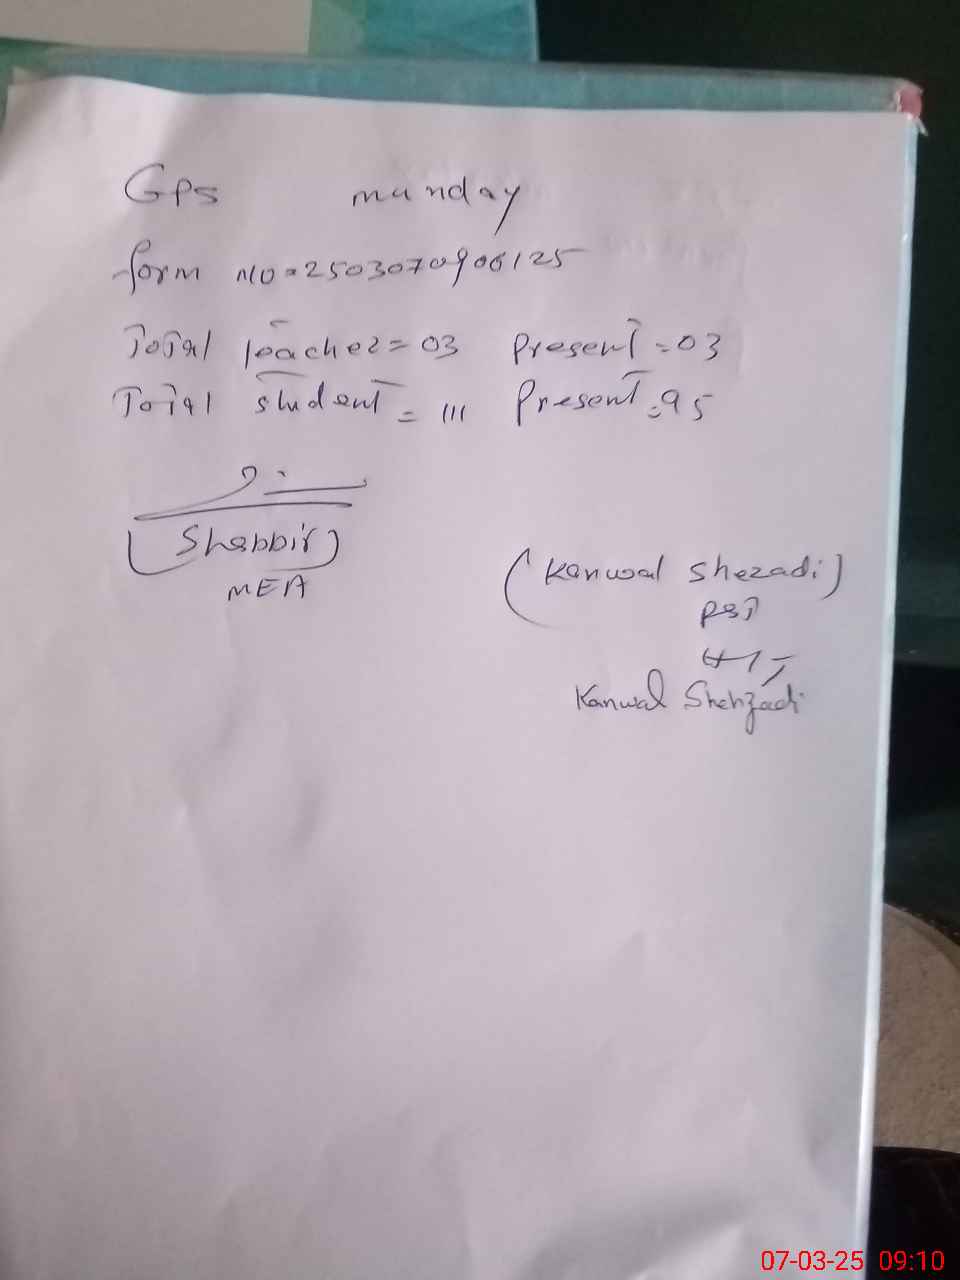 GPS munday
form NO = 2503070906125
Total teacher = 03 Present = 03
Total student = 111 Present = 95
(Shabbir)
MEA
(Kanwal Shezadi)
PST
Kanwal Shehzadi
07-03-25 09:10